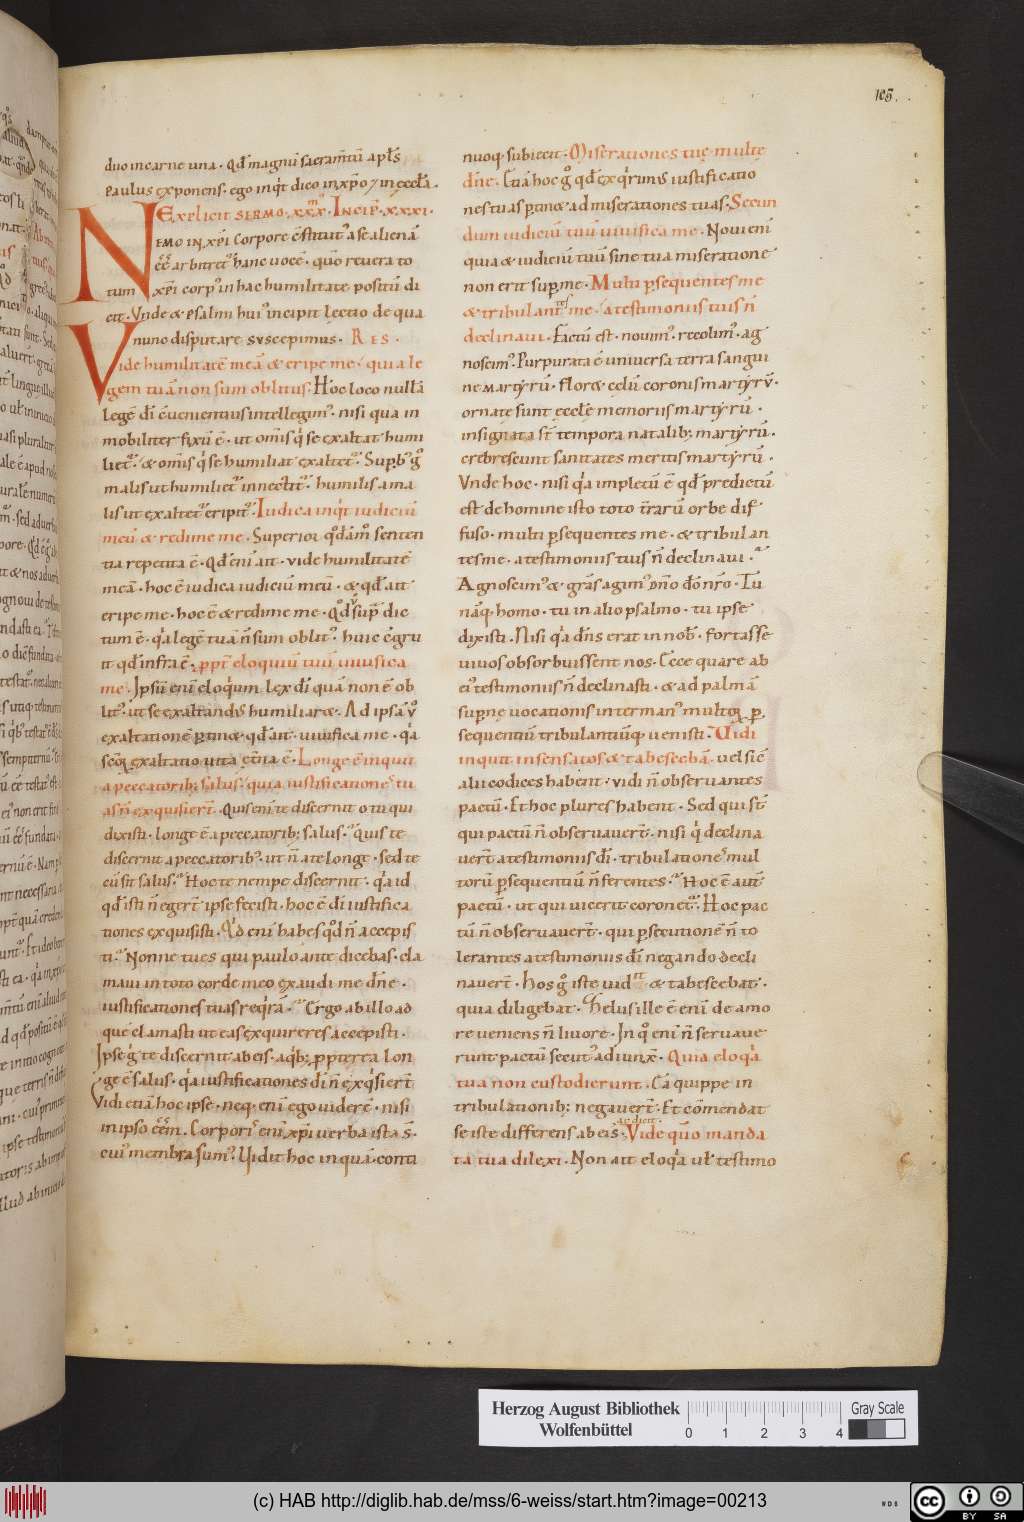 105.
duo in carne una. qđ magnū sacram̄tū apl̄s
Paulus exponens. ego inq̇t dico in xp̄o 7 in eccl̄a.
Explicit SERMO. xxx. Incip̄. xxxi.
NEMO IN xp̄i corpore c̄stitut' a se alienā
ēē arbitret' hanc uocē. quo reuera to
tum xp̄i corp' in hac humilitate positū di
cit. Vnde & psalmi hui' incipit lectio de qua
nunc disputare suscepimus. RES.
Vide humilitatē meā & eripe me. quia le
gem tuā non sum oblitus. Hoc loco nullā
legē dī c̄uenientius intellegim'. nisi qua in
mobiliter fixū ē. ut om̄is q̇ se exaltat humi
liet'. & om̄is q̇ se humiliat exaltet'. Sup̄b' g̊
malis ut humiliet' innectit'. humilis a ma
lis ut exaltet' eripit'. Iudica inq̇t iudiciū
meū & redime me. Superior q̊dām̊ senten
tia repetita ē. Qđ enī ait. vide humilitatē
meā. hoc ē iudica iudiciū meū. & qđ ait
eripe me. hoc ē & redime me. Qđ v̊ sup̄ dic
tum ē. q̇a legē tuā n̄ sum oblit'. huic c̄gru
it qđ infra ē. ppt̄ eloquiū tuū uiuifica
me. Ipsū enī eloq̇um lex dī quā non ē ob
lit'. ut se exaltand' humiliar&. Ad ipsā v̊
exaltationē p̄tin& qđ ait. uiuifica me. q̇a
sc̄oꝝ exaltatio uita et̄na ē. Longe ē inquit
a peccatorib; salus. quia iustificationes tu
as n̄ exquisiert̄. Quis enī te discernit o tu qui
dixisti. longe ē a peccatorib; salus. quis te
discernit a peccatorib'. ut n̄ a te longe. sed te
cū sit salus. Hoc te nempe discernit. q̇a id
qđ isti n̄ egert̄ ipse fecisti. hoc ē dī iustifica
tiones exquisisti. Q̇d enī habes qđ n̄ accepis
ti. Nonne tu es qui paulo ante dicebas. cla
maui in toto corde meo exaudi me dn̄e.
iustificationes tuas req̇rā. Ergo ab illo ad
quē clamasti ut eas exquireres accepisti.
Ipse g̊ te discernit ab eis. a q̇b; pp̄terea lon
ge ē salus. q̇a iustificationes dī n̄ exq̇siert̄
Vidi etiā hoc ipse. neq. enī ego viderē. nisi
in ipso ēēm. Corporis enī xp̄i uerba ista s̄.
cui' membra sum'. Uidit hoc inquā. conti
nuoq̨ subiecit. Miserationes tuę multę
dn̄e. Etiā hoc g̊ qđ exq̇rim' iustificatio
nes tuas p̄tin& ad miserationes tuas. Secun
dum iudiciū tuū uiuifica me. Noui enī
quia & iudiciū tuū sine tua miseratione
non erit sup̄ me. Multi p̄sequentes me
& tribulantes me. a testimoniis tuis n̄
declinaui. Factū est. nouim'. recolim'. ag
noscim'. Purpurata ē uniuersa terra sangui
ne martyrū. flor& celū coronis martyrū.
ornatę sunt eccl̄ę memoriis martyrū.
insignita st̄ tempora natalib; martyrū.
crebrescunt sanitates meritis martyrū.
Vnde hoc. nisi q̇a impletū ē qđ predictū
est de homine isto toto t̄rarū orbe dif
fuso. multi p̄sequentes me. & tribulan
tes me. a testimoniis tuis n̄ declinaui.
Agnoscim' & grās agim' dn̄o dō nr̄o. Tu
nāq. homo. tu in alio psalmo. tu ipse
dixisti. Nisi q̇a dn̄s erat in nob̄. fortasse
uiuos obsorbuissent nos. Ecce quare ab
ei' testimoniis n̄ declinasti. & ad palmā
supernę uocationis inter man' multoꝝ p̄
sequentiū tribulantiūq; uenisti. Vidi
inquit insensatos & tabescebā. uel sic̄
alii codices habent. vidi n̄ obseruantes
pactū. Et hoc plures habent. Sed qui st̄
qui pactū n̄ obseruauert̄. nisi q̇ declina
uert̄ a testimoniis dī. tribulationes mul
torū p̄sequentiū n̄ ferentes. Hoc ē aut̄
pactū. ut qui uicerit coronet'. Hoc pac
tū n̄ obseruauert̄. qui p̄secutionē n̄ to
lerantes a testimoniis dī negando decli
nauert̄. hos g̊ iste uidit & tabescebat.
quia diligebat. Zelus ille ē enī de amo
re ueniens n̄ liuore. In q̊ enī n̄ seruaue
runt pactū secut' adiunx̄. Quia eloq̇a
tua non custodierunt. Ea quippe in
tribulationib; negauert̄. Et cōmendat
se iste differens ab eis. ac dicit. Vide qm̄o manda
ta tua dilexi. Non ait eloq̇a uł testimo
Herzog August Bibliothek
Wolfenbüttel
0 1 2 3 4
Gray Scale
(c) HAB http://diglib.hab.de/mss/6-weiss/start.htm?image=00213
WDB
cc BY SA